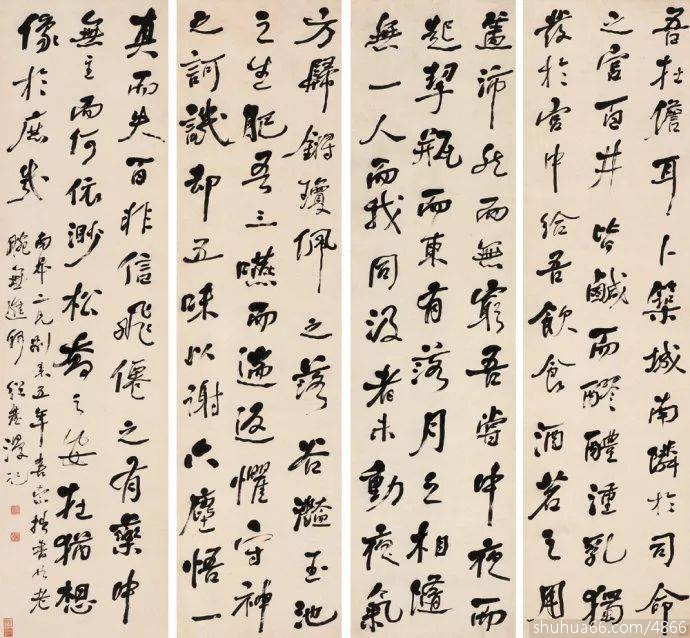 吾在儋耳卜築城南隣於司命
之宮百井皆鹹而醪醴湩乳獨
發於宮中給吾飲食酒茗之用
蓋沛然而無窮吾嘗中夜而
起挈瓶而東有落月之相隨
無一人而我同汲者未動夜氣
方歸鏘瓊佩之落谷灩玉池
之生肥吾三嚥而遄返懼守神
之訶譏却五味以謝六塵悟一
真而失百非信飛僊之有藥中
無主而何依渺松喬之安在猶想
像於庶幾
二兄別來五年拙書老
腕無進
shuhua66.com/4866